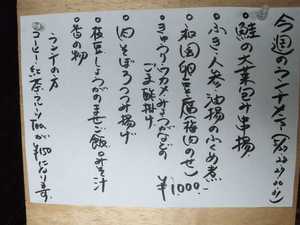 今週のランチメニュー
●鮭の大葉包み串揚
●ふき、人参、油揚のふくめ煮
●和風卵豆腐(梅肉のせ)
●きゅうり、ワカメ、みょうがなどの
ごま酢掛け
¥1,000.
●肉そぼろつつみ揚げ
●枝豆しょうがのまぜご飯、みそ汁
●香の物
ランチの方
コーヒー、紅茶、
が¥150になります。